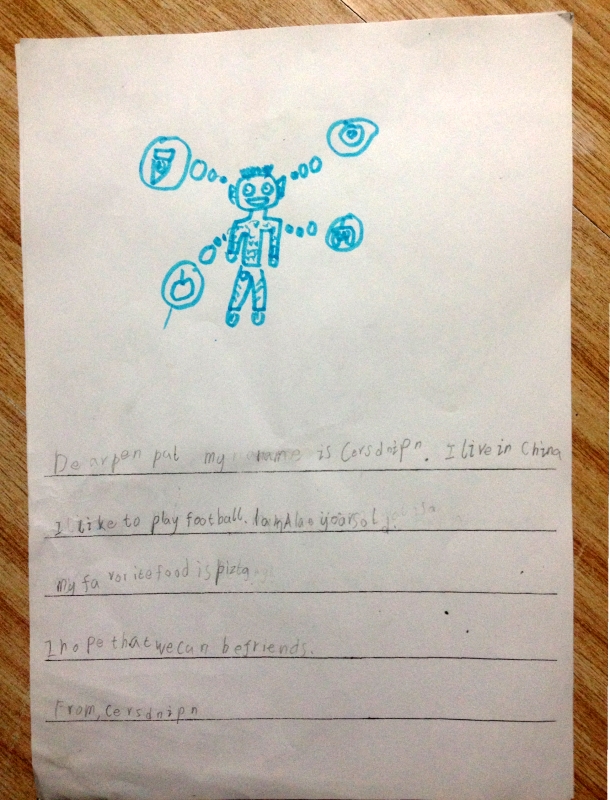 Dearpen pal my name is Cersdnipn. I live in China
I like to play football.
my favorite food is pizta
I hope that we can be friends.
From, Cersdnipn